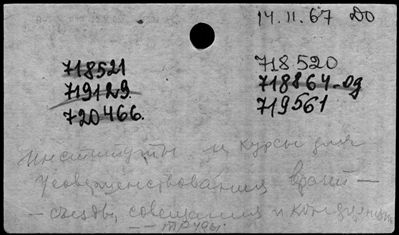 14.11.67 До
718521
719129.
720466.
718520
718864-од
719561
Институты и курсы для
усовершенствования врачей —
— съезды, совещания и конференции
— — труды